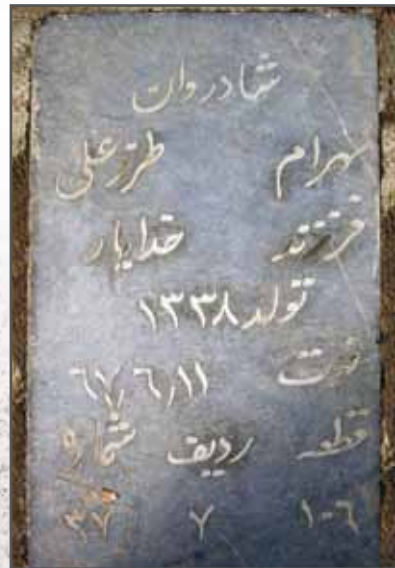 شادروان
بهرام طرزعلی
فرزند خدایار
تولد ۱۳۳۸
فوت ۶۷٫۶٫۱۱
قطعه ردیف شماره
۱-۶ ۷ ۳۷